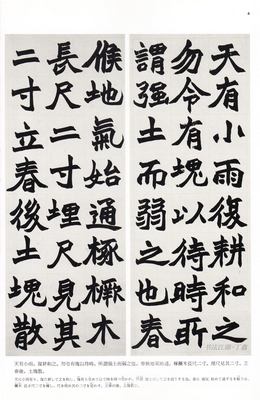 天有小雨復耕和之
勿令有塊以待時所
謂强土而弱之也春
候地氣始通椓橛木
長尺二寸埋尺見其
二寸立春後土塊散
天有小雨，復耕和之，勿令有塊以待時。所謂强土而弱之也。春候地氣始通，椓橛木長尺二寸，埋尺見其二寸。立
春後，土塊散